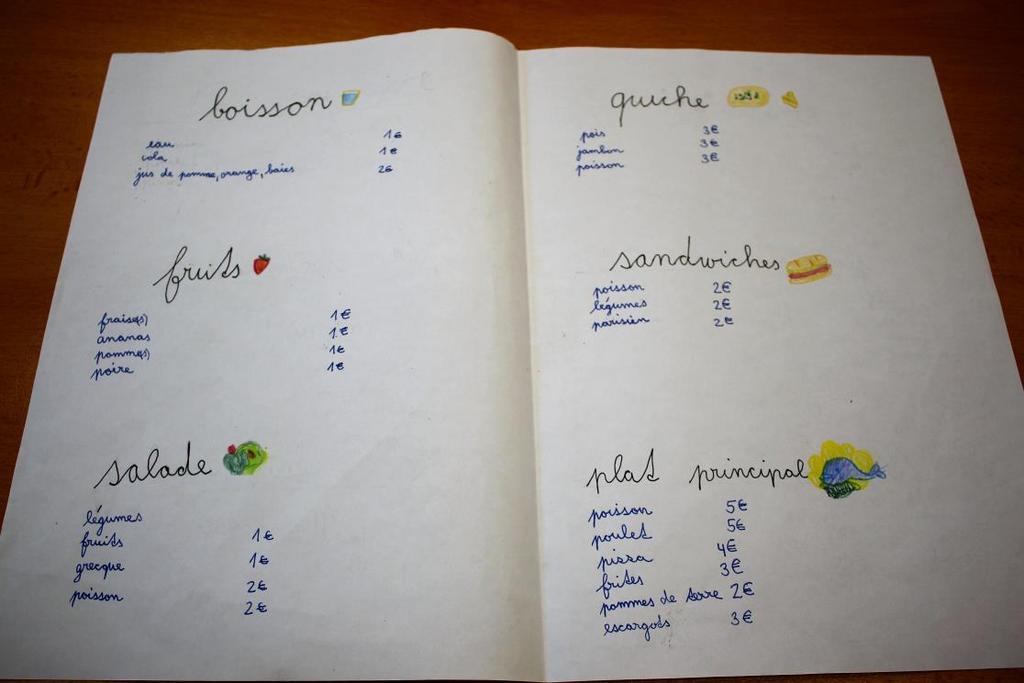 boisson
eau 1€
cola 1€
jus de pomme, orange, baies 2€
fruits
fraise(s) 1€
ananas 1€
pomme(s) 1€
poire 1€
salade
légumes 1€
fruits 1€
grecque 2€
poisson 2€
quiche
pois 3€
jambon 3€
poisson 3€
sandwiches
poisson 2€
légumes 2€
parisien 2€
plat principal
poisson 5€
poulet 5€
pizza 4€
frites 3€
pommes de terre 2€
escargots 3€